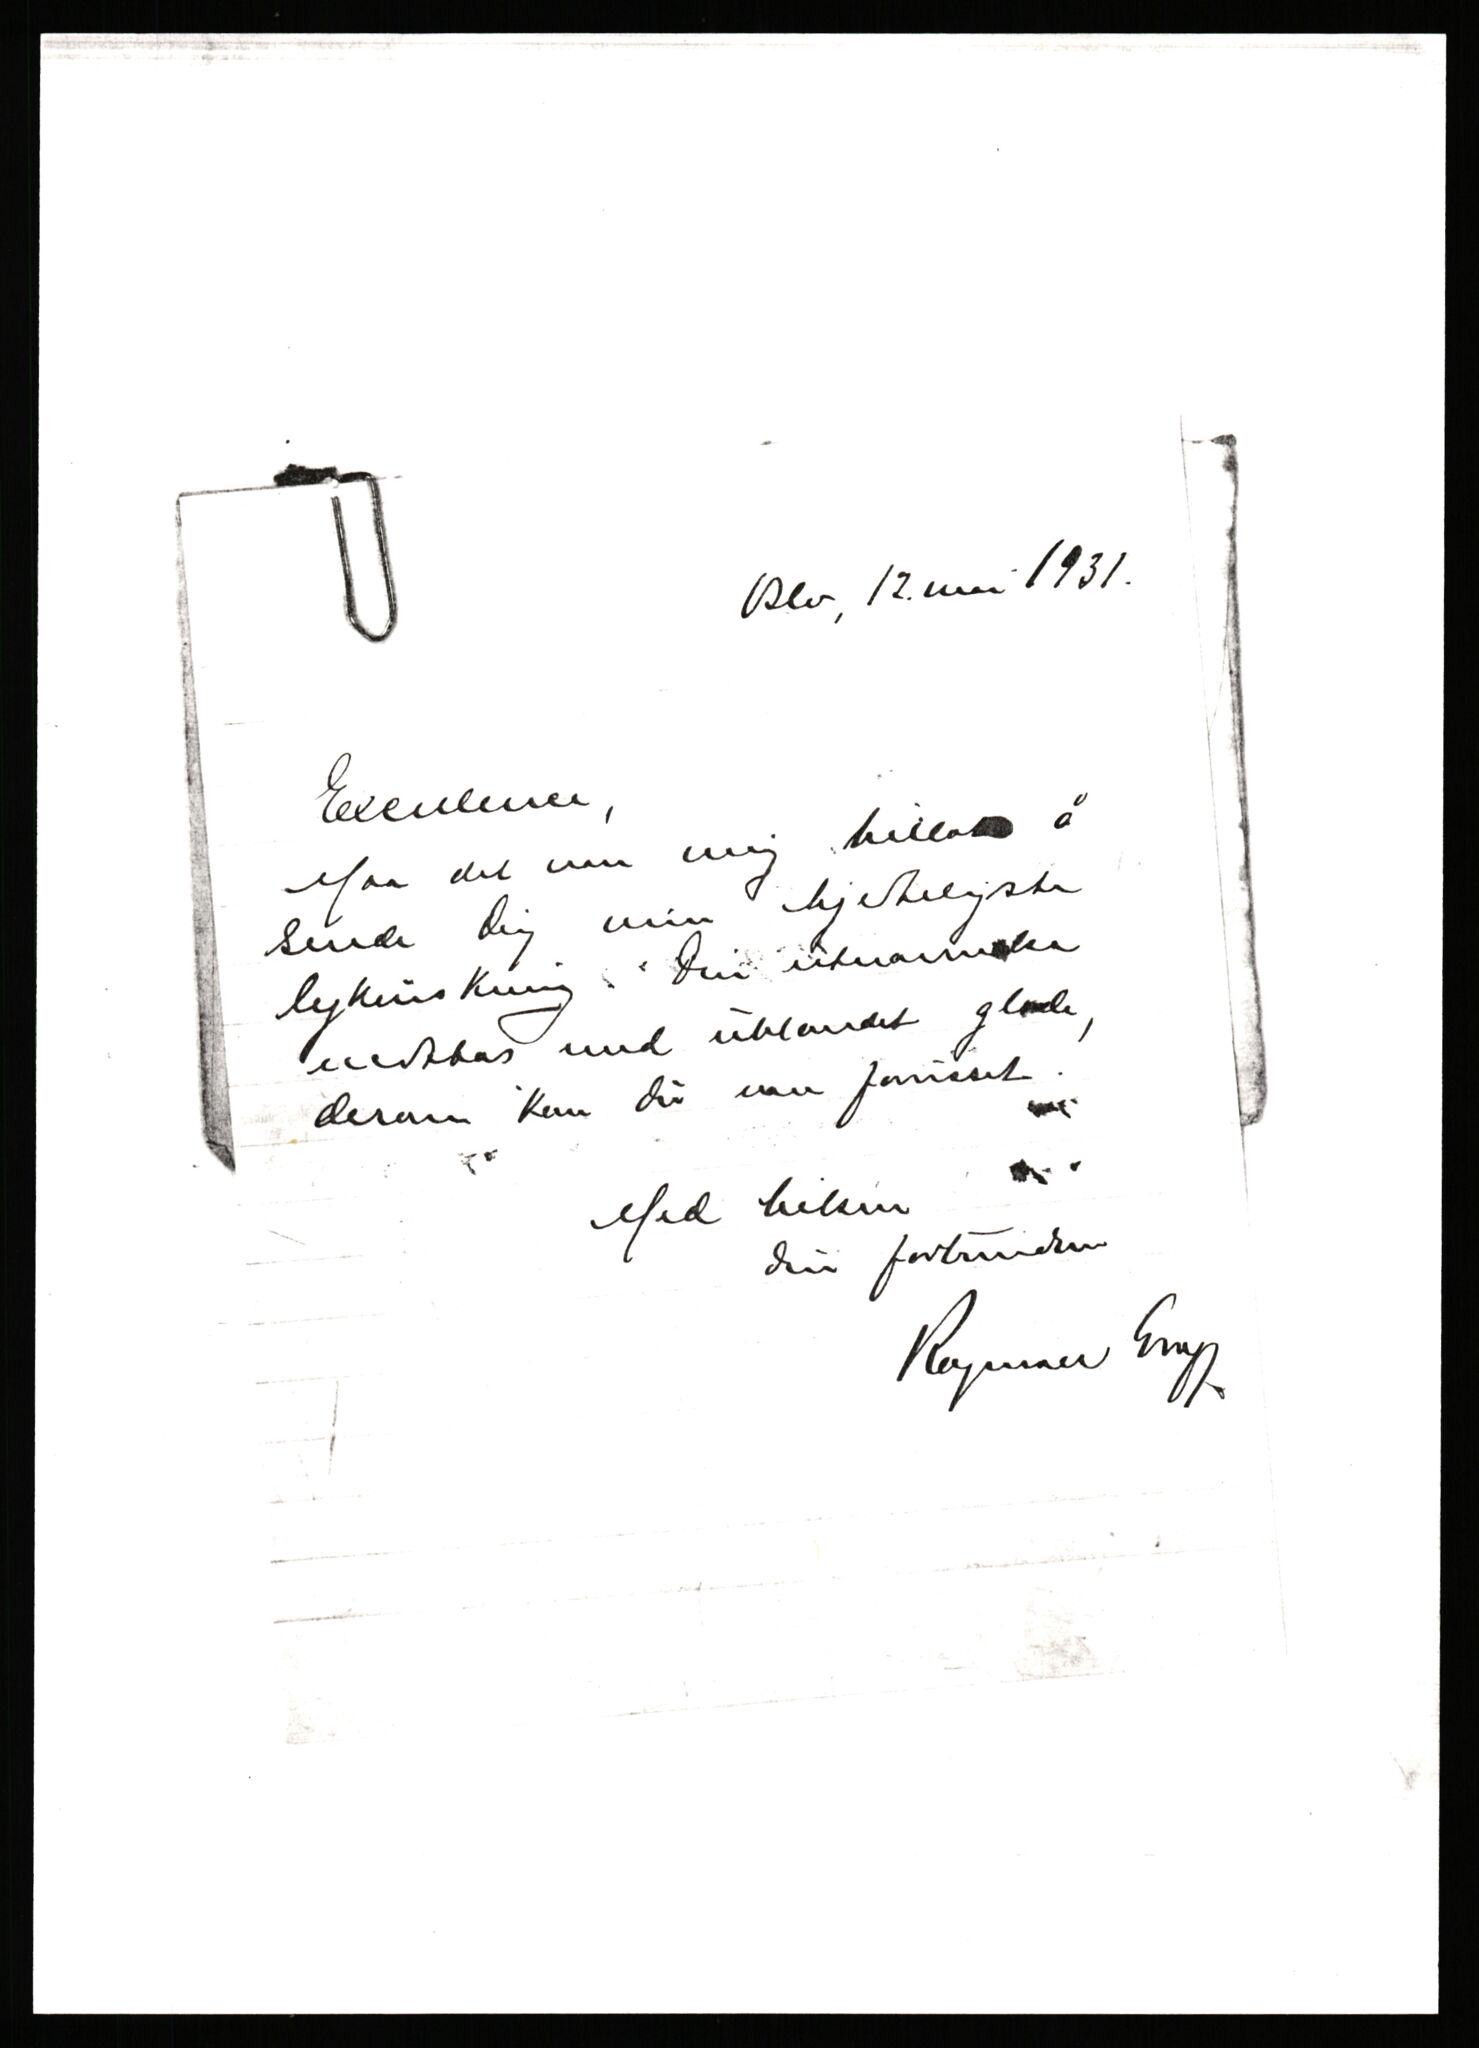 Oslo, 12. mai 1931.
Excellence,
Maa det være mig tillatt å
sende dig min hjerteligste
lykønskning. Din utnævnelse
mottas med udelandet glæde,
derom kan du være forvisset.
Med hilsen
din forbundne